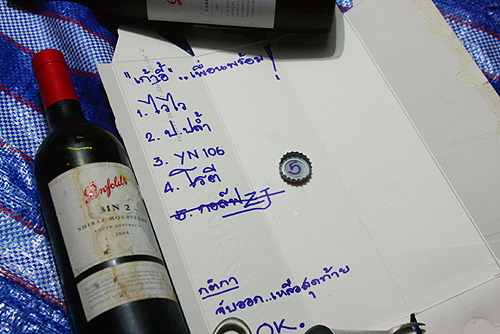 "เก้าอี้"..เพื่อนพร้อม!
1. ไวไว
2. ป.ปล้ำ
3. YN 106
4. โรตี
5. กอล์ฟ ZJ
กติกา
จับออก..เหลือสุดท้าย
OK.
Penfolds
BIN 2
SHIRAZ MOURVÈDRE
SOUTH AUSTRALIA
2008